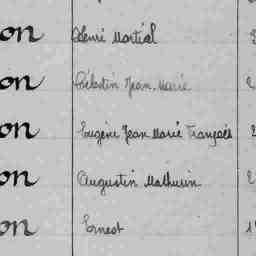 on Henri Martial
on Célestin Jean Marie
on Eugène Jean Marie François
on Augustin Mathurin
on Ernest